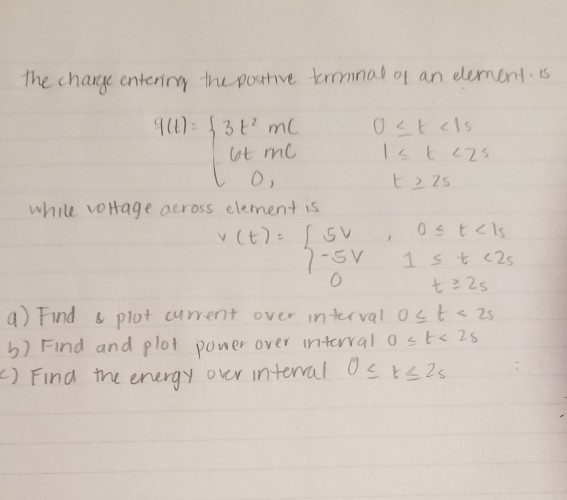 the charge entering the positive terminal of an element. is
q(t) = { 3t² mC 0 ≤ t < 1s
6t mC 1 ≤ t < 2s
0, t ≥ 2s
while voltage across element is
v(t) = { 5V , 0 ≤ t < 1s
-5V 1 ≤ t < 2s
0 t ≥ 2s
a) Find & plot current over interval 0 ≤ t < 2s
b) Find and plot power over interval 0 ≤ t < 2s
c) Find the energy over interval 0 ≤ t ≤ 2s